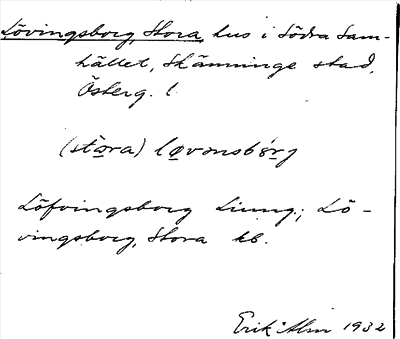 Lövingsborg, Stora, hus i Södra Sam-
hället, Skänninge stad,
Österg. l.
(stɷra) løvənsbɷrj
Löfvingsborg Ljung.; Lö-
vingsborg, Stora kb.
Erik Alm 1932